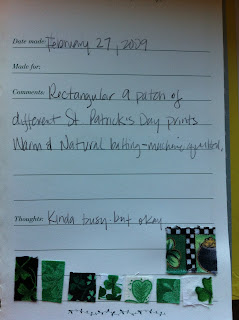 Date made: February 27, 2009
Made for:
Comments: Rectangular 9 patch of
different St Patrick's Day prints
Warm & Natural batting-machine quilted.
Thoughts: Kinda busy-but okay